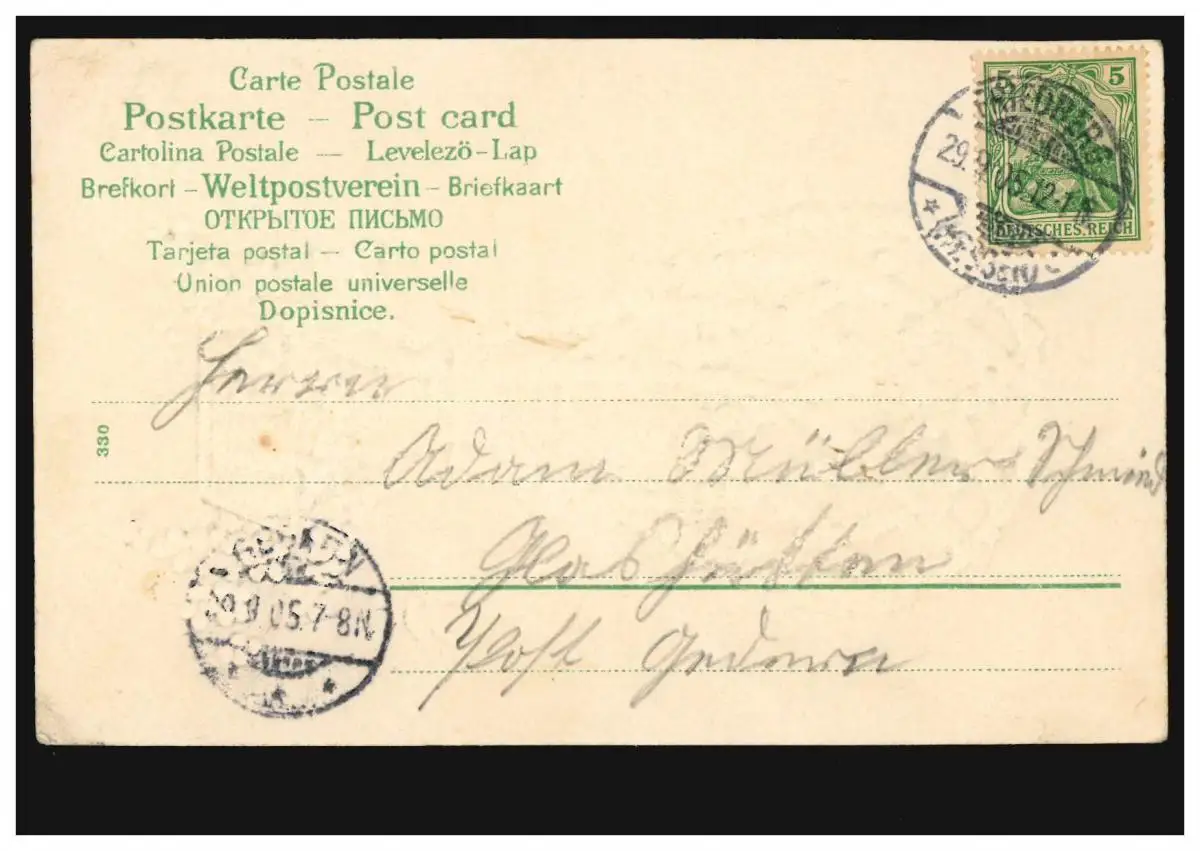 Carte Postale
Postkarte – Post card
Cartolina Postale — Levelezö-Lap
Brefkort – Weltpostverein – Briefkaart
ОТКРЫТОЕ ПИСЬМО
Tarjeta postal – Carto postal
Union postale universelle
Dopisnice.
5 5
DEUTSCHES REICH
FRIEDBERG
29.9.05.12-1N.
(HESSEN)
330
Herrn
Adam Müller Schmied
Glashütten
Post Gedern
GEDERN
29.9.05.7-8N.